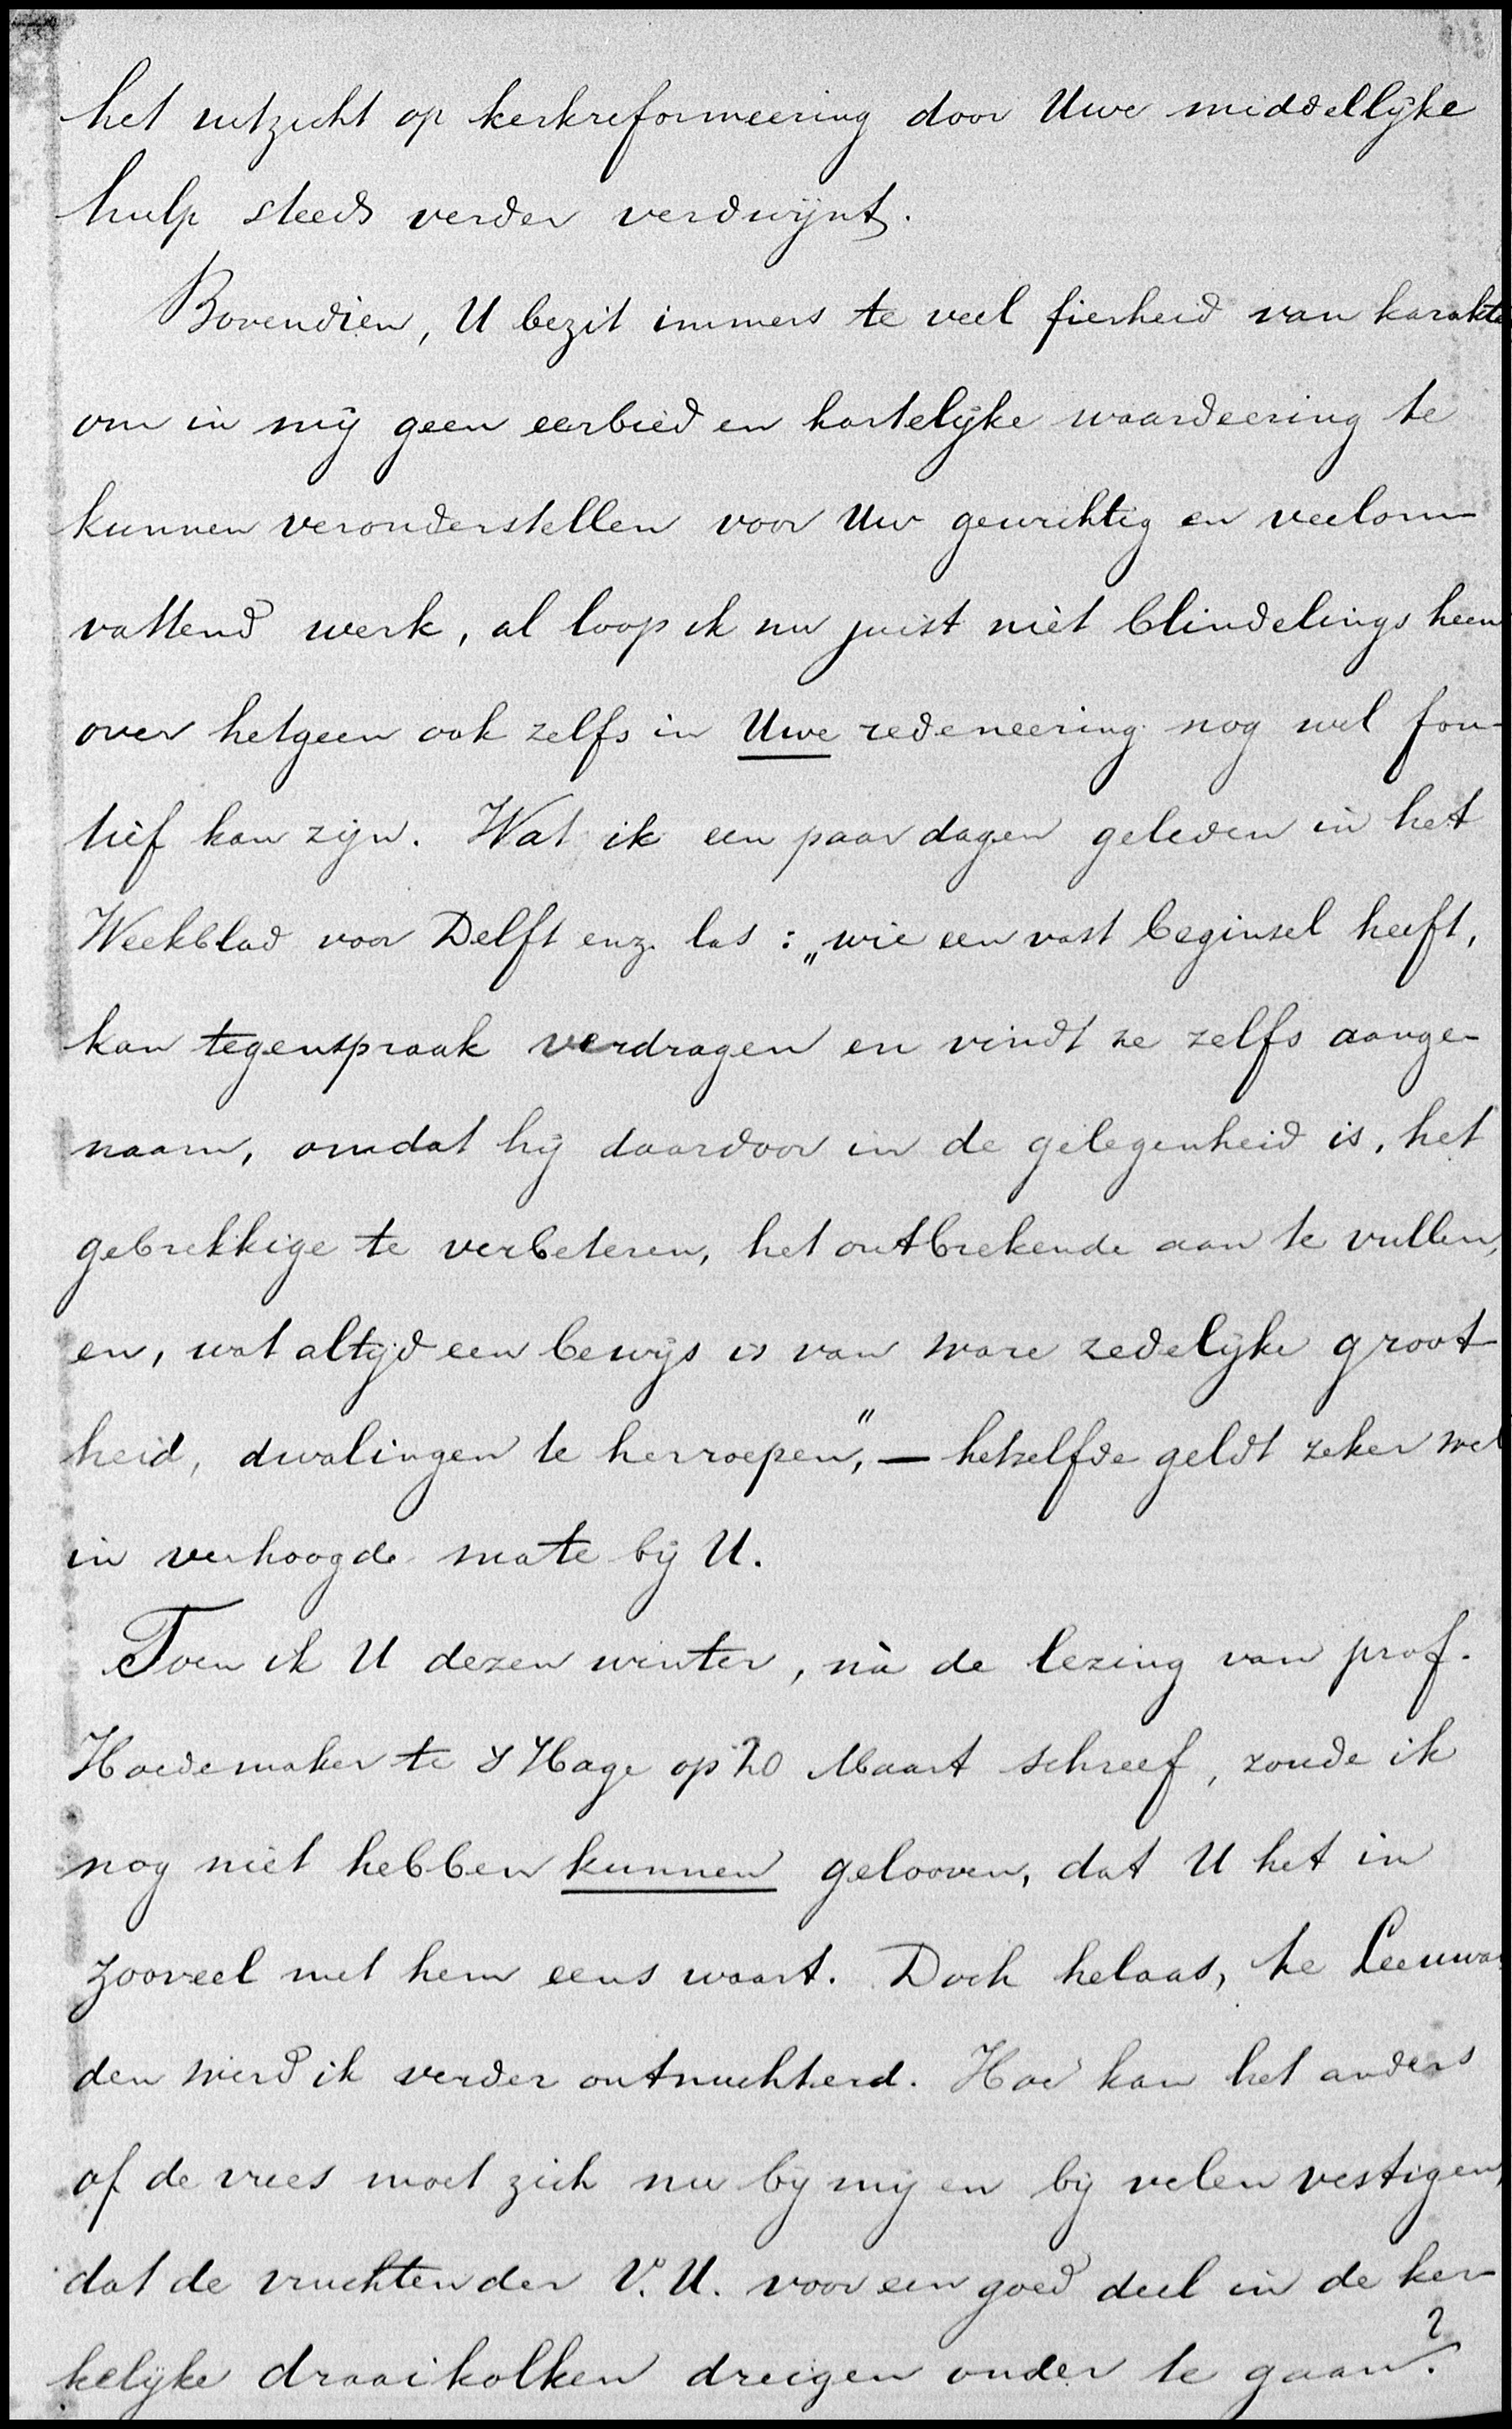 het uitzicht op kerkreformeering door Uwe middellijke
hulp steeds verder verdwijnt.
Bovendien, U bezit immers te veel fierheid van karakte
om in mij geen eerbied en hartelijke waardeering te
kunnen veronderstellen voor Uw gewichtig en veelom-
vattend werk, al loop ik nu juist niet blindelings heen
over hetgeen ook zelfs in Uwe redeneering nog wel fou-
tief kan zijn. Wat ik een paar dagen geleden in het
Weekblad voor Delft enz. las : „wie een vast beginsel heeft,
kan tegenspraak verdragen en vindt ze zelfs aange-
naam, omdat hij daardoor in de gelegenheid is, het
gebrekkige te verbeteren, het ontbrekende aan te vullen,
en, wat altijd een bewijs is van ware zedelijke groot-
heid, dwalingen te herroepen," — hetzelfde geldt zeker wel
in verhoogde mate bij U.
Toen ik U dezen winter, nà de lezing van prof.
Hoedemaker te 's Hage op 20 Maart schreef, zoude ik
nog niet hebben kunnen gelooven, dat U het in
zooveel met hem eens waart. Doch helaas, te Leeuwar
den werd ik verder ontnuchterd. Hoe kan het anders
of de vrees moet zich nu bij mij en bij velen vestigen,
dat de vruchten der V.U. voor een goed deel in de ker-
kelijke draaikolken dreigen onder te gaan?